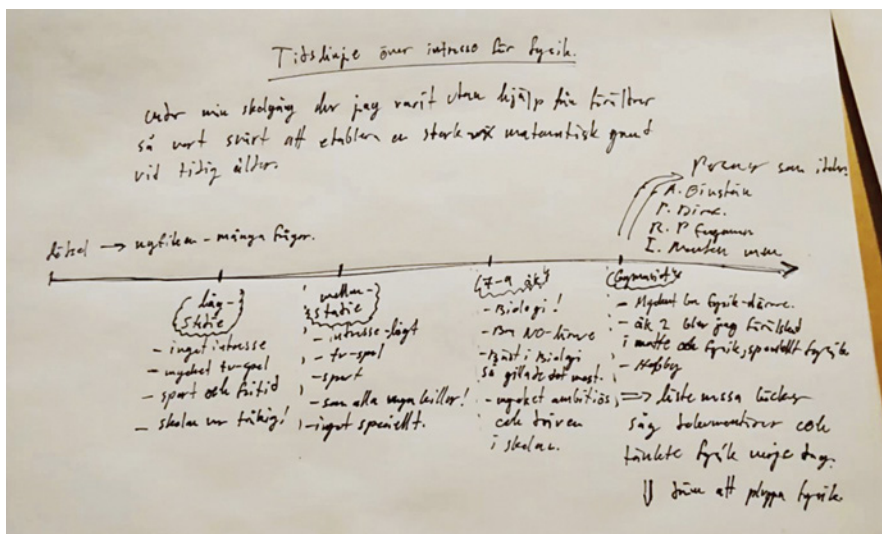 Tidslinje över intresse för fysik.
under min skolgång där jag varit utan hjälp från föräldrar
så vart svårt att etablera en stark matematisk grund
vid tidig ålder.
Personer som idoler
A. Einstein
P. Dirac.
R. P Feynman
I. Newton mm
födsel → nyfiken - många frågor.
låg-
stadie
- inget intresse
- mycket tv-spel
- sport och fritid
- skolan var tråkig!
mellan-
stadie
- intresse-lågt
- tv-spel
- sport
- som alla unga killor!
- inget speciellt.
7-9 åk
- Biologi!
- Bra NO-lärare
- Bäst i Biologi
så gillade det mest.
- mycket ambitiös
och driven
i skolan.
Gymnasiet
- Mycket bra fysik-lärare.
- åk 2 blev jag förälskad
i matte och fysik, speciellt fysik
- Hobby
⇒ läste massa böcker
såg dokumentärer och
tänkte fysik varje dag.
⇓ dröm att plugga fysik.